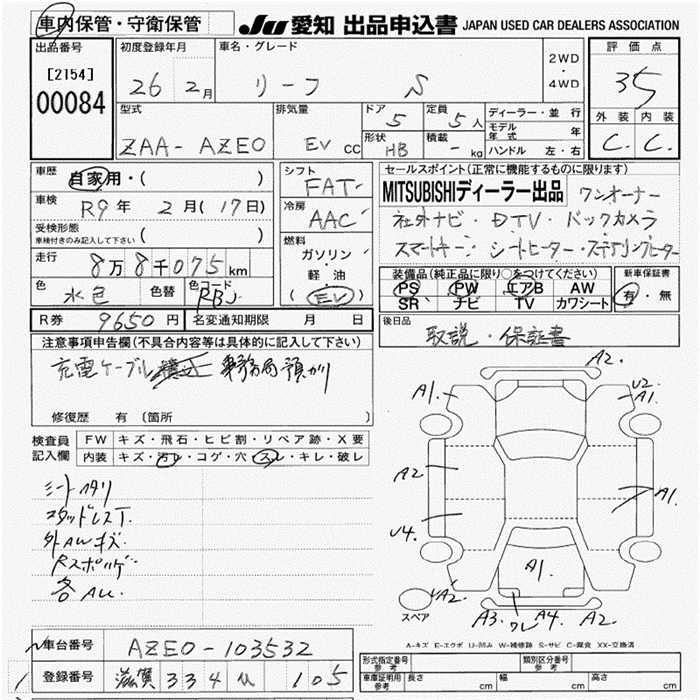 車内保管・守衛保管 JU 愛知 出品申込書 JAPAN USED CAR DEALERS ASSOCIATION
出品番号 初度登録年月 車名・グレード 2WD ・ 4WD 評価点
[2154] 26 2月 リーフ S 3.5
00084
型式 排気量 ドア 5 定員 5人 ディーラー・並行 外装 内装
モデル年式 年
ZAA-AZE0 EV CC 形状 HB 積載 - kg ハンドル 左・右 C. C.
車歴 自家用・( ) シフト FAT セールスポイント(正常に機能するものに限ります)
MITSUBISHIディーラー出品 ワンオーナー
車検 R9年 2月(17日) 冷房 AAC 社外ナビ・DTV・バックカメラ
受検形態 車検付きのみ記入して下さい ( ) 燃料 スマートキー・シートヒーター・ステアリングヒーター
走行 8万8千075km ガソリン・軽油 (EV) 装備品(純正品に限り○をつけてください) 新車保証書
色 水色 色替 色コード RBJ PS PW エアB AW 有・無
SR ナビ TV カワシート
R券 9650円 名変通知期限 月 日 後日品 取説・保証書
注意事項申告欄(不具合内容等は具体的に記入して下さい)
充電ケーブル 事務局預かり
修復歴 有 (箇所
検査員記入欄 FW キズ・飛石・ヒビ割・リペア跡・X要
内装 キズ・汚レ・コゲ・穴・スレ・キレ・破レ
シートヘタリ
スタッドレスT.
外AWキズ
各AU.
A2.
A1. U2. A1.
A2 A1.
U4.
A1.
A2.
スペア A3. ワレ A4. A2.
A-キズ E-エクボ U-凹み W-補修跡 S-サビ C-腐食 XX-交換済
車台番号 AZE0-103532
登録番号 滋賀 334 い 105
形式指定番号 参考 類別区分番号 参考
車庫証明用 参考 長さ cm 幅 cm 高さ cm